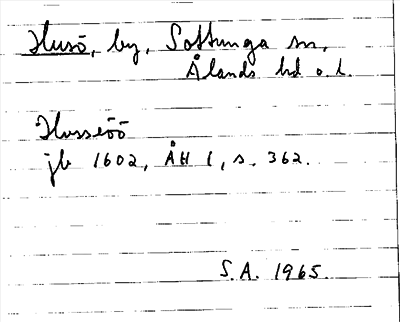 Husö, by, Sottunga sn,
Ålands hd o. l.
Husseöö
jb 1602, ÅH 1, s. 362.
S.A. 1965.